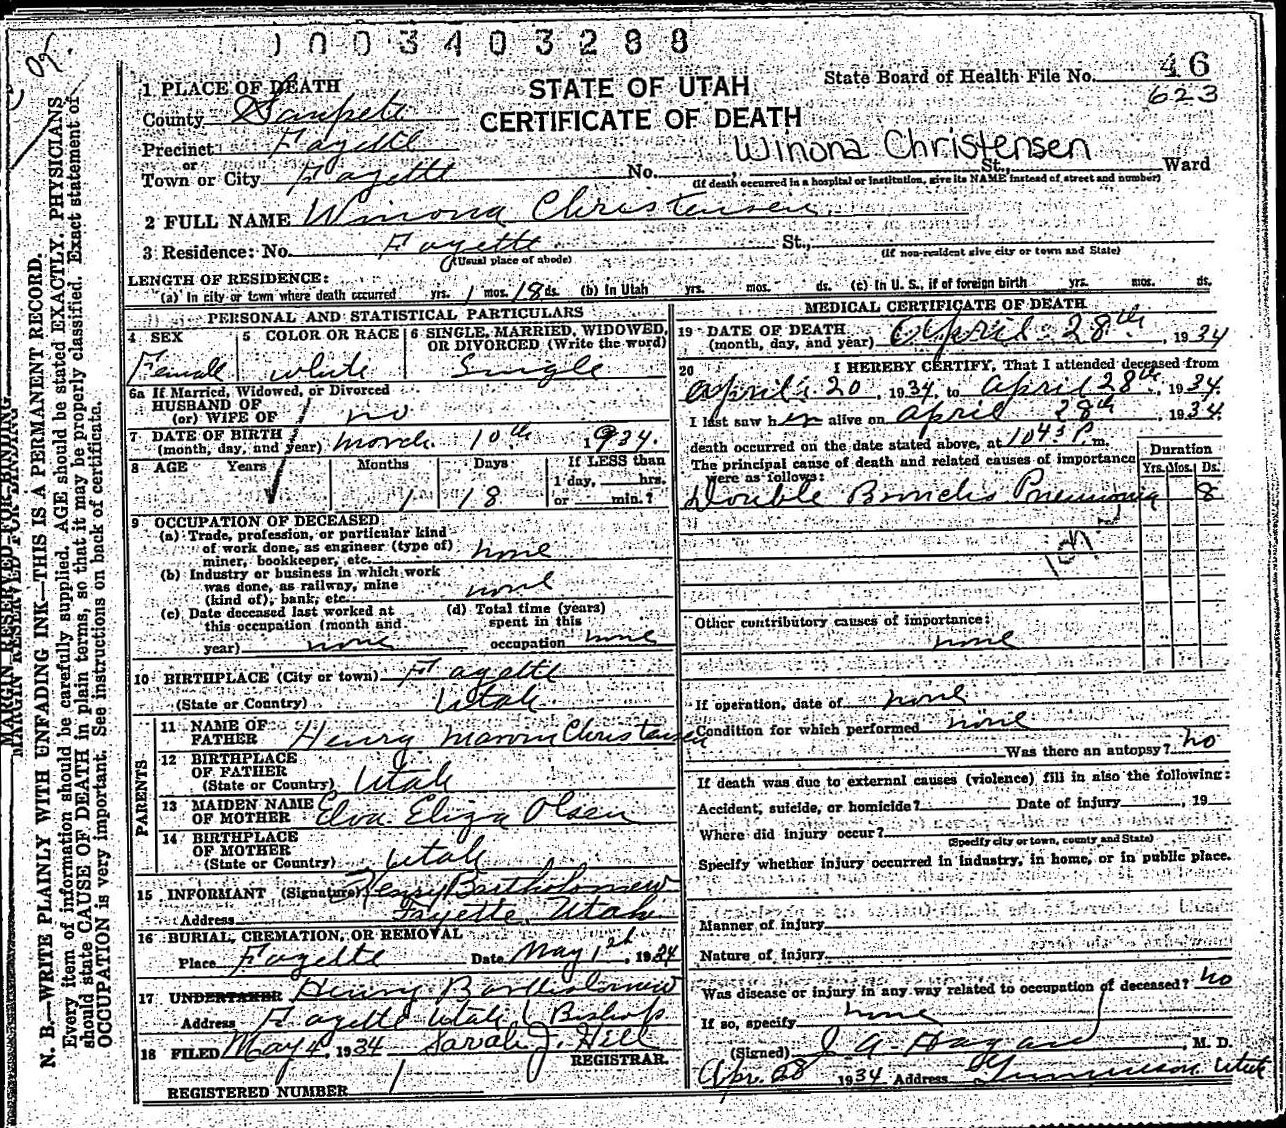 1 0 0 3 4 0 3 2 8 8
46
623
STATE OF UTAH
CERTIFICATE OF DEATH
State Board of Health File No.
1 PLACE OF DEATH
County Sanpete
Precinct Fayette
or
Town or City Fayette No. Winona Christensen St., Ward
(If death occurred in a hospital or institution, give its NAME instead of street and number)
2 FULL NAME Winona Christensen
3 Residence: No. Fayette St.,
(Usual place of abode) (If non-resident give city or town and State)
LENGTH OF RESIDENCE:
(a) In city or town where death occurred yrs. 1 mos. 18 ds. (b) In Utah yrs. mos. ds. (c) In U. S., if of foreign birth yrs. mos. ds.
PERSONAL AND STATISTICAL PARTICULARS
4 SEX
Female
5 COLOR OR RACE
White
6 SINGLE, MARRIED, WIDOWED,
OR DIVORCED (Write the word)
Single
6a If Married, Widowed, or Divorced
HUSBAND OF
(or) WIFE OF no
7 DATE OF BIRTH
(month, day, and year) March 10th 1934.
8 AGE Years Months Days If LESS than
1 18 1 day, hrs.
or min.?
9 OCCUPATION OF DECEASED
(a) Trade, profession, or particular kind
of work done, as engineer (type of)
miner, bookkeeper, etc. none
(b) Industry or business in which work
was done, as railway, mine
(kind of), bank, etc. none
(c) Date deceased last worked at
this occupation (month and
year) none
(d) Total time (years)
spent in this
occupation none
10 BIRTHPLACE (City or town) Fayette
(State or Country) Utah
PARENTS
11 NAME OF
FATHER Henry Marvin Christensen
12 BIRTHPLACE
OF FATHER
(State or Country) Utah
13 MAIDEN NAME
OF MOTHER Elva Eliza Olsen
14 BIRTHPLACE
OF MOTHER
(State or Country) Utah
15 INFORMANT (Signature) Henry Bartholomew
Address Fayette, Utah
16 BURIAL, CREMATION, OR REMOVAL
Place Fayette Date May 1st, 1934
17 UNDERTAKER Henry Bartholomew
Address Fayette Utah (Bishop
18 FILED May 4, 1934 Sarah J. Hill
REGISTRAR.
REGISTERED NUMBER 1
MEDICAL CERTIFICATE OF DEATH
19 DATE OF DEATH
(month, day, and year) April 28th, 1934
20 I HEREBY CERTIFY, That I attended deceased from
April 20, 1934, to April 28th, 1934.
I last saw her alive on April 28th, 1934.
death occurred on the date stated above, at 1045 P. m.
The principal cause of death and related causes of importance
were as follows:
Duration
Yrs. Mos. Ds.
Double Broncho Pneumonia 8
Other contributory causes of importance:
none
If operation, date of none
Condition for which performed none
Was there an autopsy? no
If death was due to external causes (violence) fill in also the following:
Accident, suicide, or homicide? Date of injury , 19
Where did injury occur?
(Specify city or town, county and State)
Specify whether injury occurred in industry, in home, or in public place.
Manner of injury
Nature of injury
Was disease or injury in any way related to occupation of deceased? no
If so, specify none
(Signed) J A Hagan, M. D.
Apr. 28 1934 Address Gunnison Utah
MARGIN RESERVED FOR BINDING.
N. B.—WRITE PLAINLY WITH UNFADING INK—THIS IS A PERMANENT RECORD.
Every item of information should be carefully supplied. AGE should be stated EXACTLY. PHYSICIANS
should state CAUSE OF DEATH in plain terms, so that it may be properly classified. Exact statement of
OCCUPATION is very important. See instructions on back of certificate.